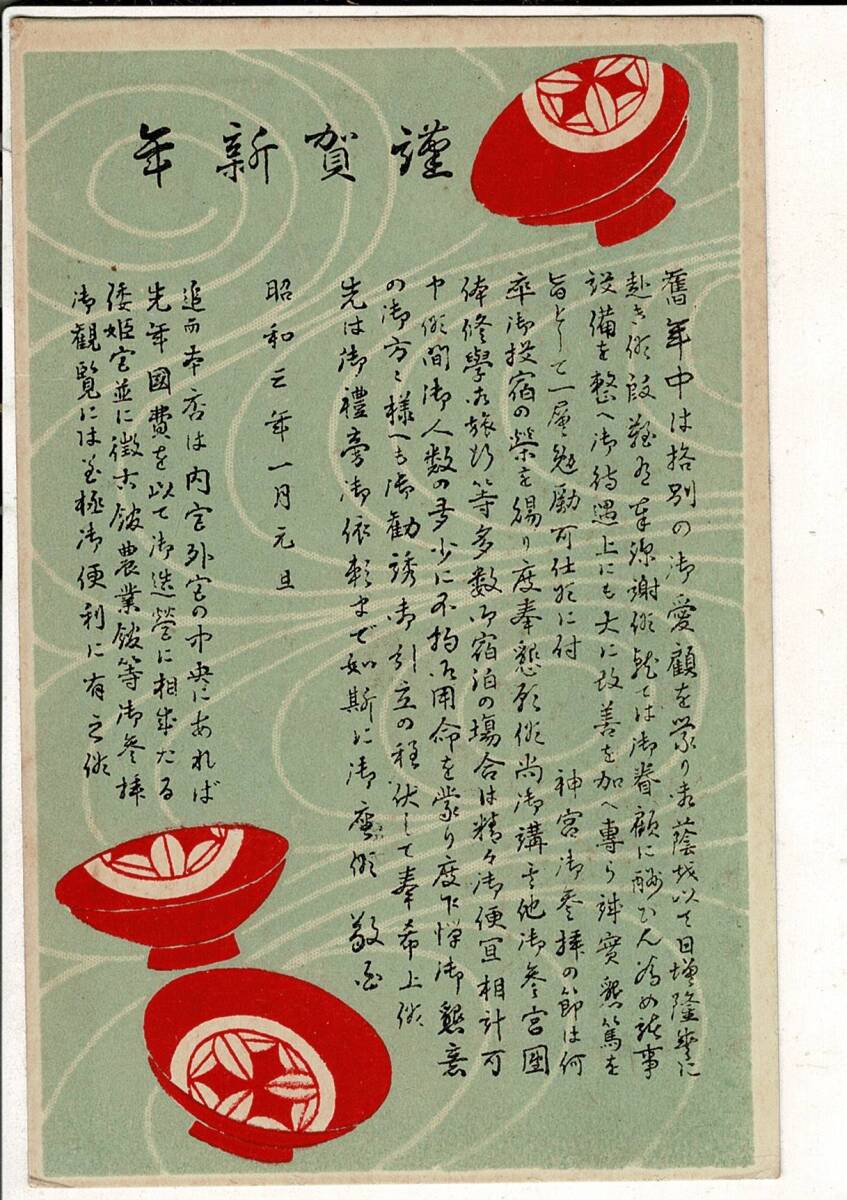 謹賀新年
舊年中は格別の御愛顧を蒙り御蔭を以て日增隆盛に
赴き候段難有奉深謝候就ては御眷顧に酬ひん為め諸事
設備を整へ御待遇上にも大に改善を加へ專ら誠實懇篤を
旨として一層勉勵可仕候に付 神宮御參拜の節は何
卒御投宿の榮を賜り度奉懇願候尚御講其他御參宮團
体修學旅行等多數御宿泊の場合は精々御便宜相計可
申候間御人数の多少に不拘御用命を蒙り度乍憚御懇意
の御方々様へも御勸誘御引立の程伏して奉希上候
先は御禮旁御依頼まで如斯に御座候 敬白
昭和三年一月元旦
追而本店は内宮外宮の中央にあれば
先年國費を以て御造營に相成たる
倭姫宮並に徴古館農業館等御參拜
御觀覽には至極御便利に有之候